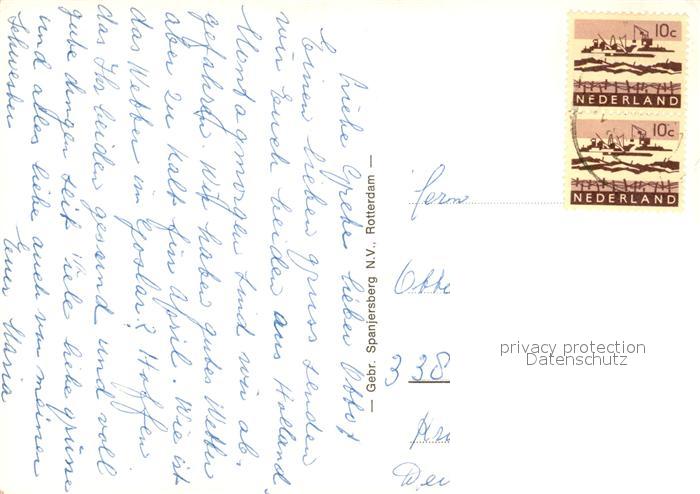 Liebe Grete lieber Otto!
Einen lieben gruss senden
wir Euch beiden aus Holland.
Montagmorgen sind wir ab
gefahren. Wir haben gutes Wetter
aber zu kalt für April. Wie ist
das Wetter in Goslar? Hoffen
das Ihr beiden gesund und voll
guter dingen seit. Viele liebe grüsse
und alles liebe auch von meiner
Schwester Eure Maria
— Gebr. Spanjersberg N.V., Rotterdam —
10c
NEDERLAND
10c
NEDERLAND
Herrn
Otto
338
privacy protection
Datenschutz